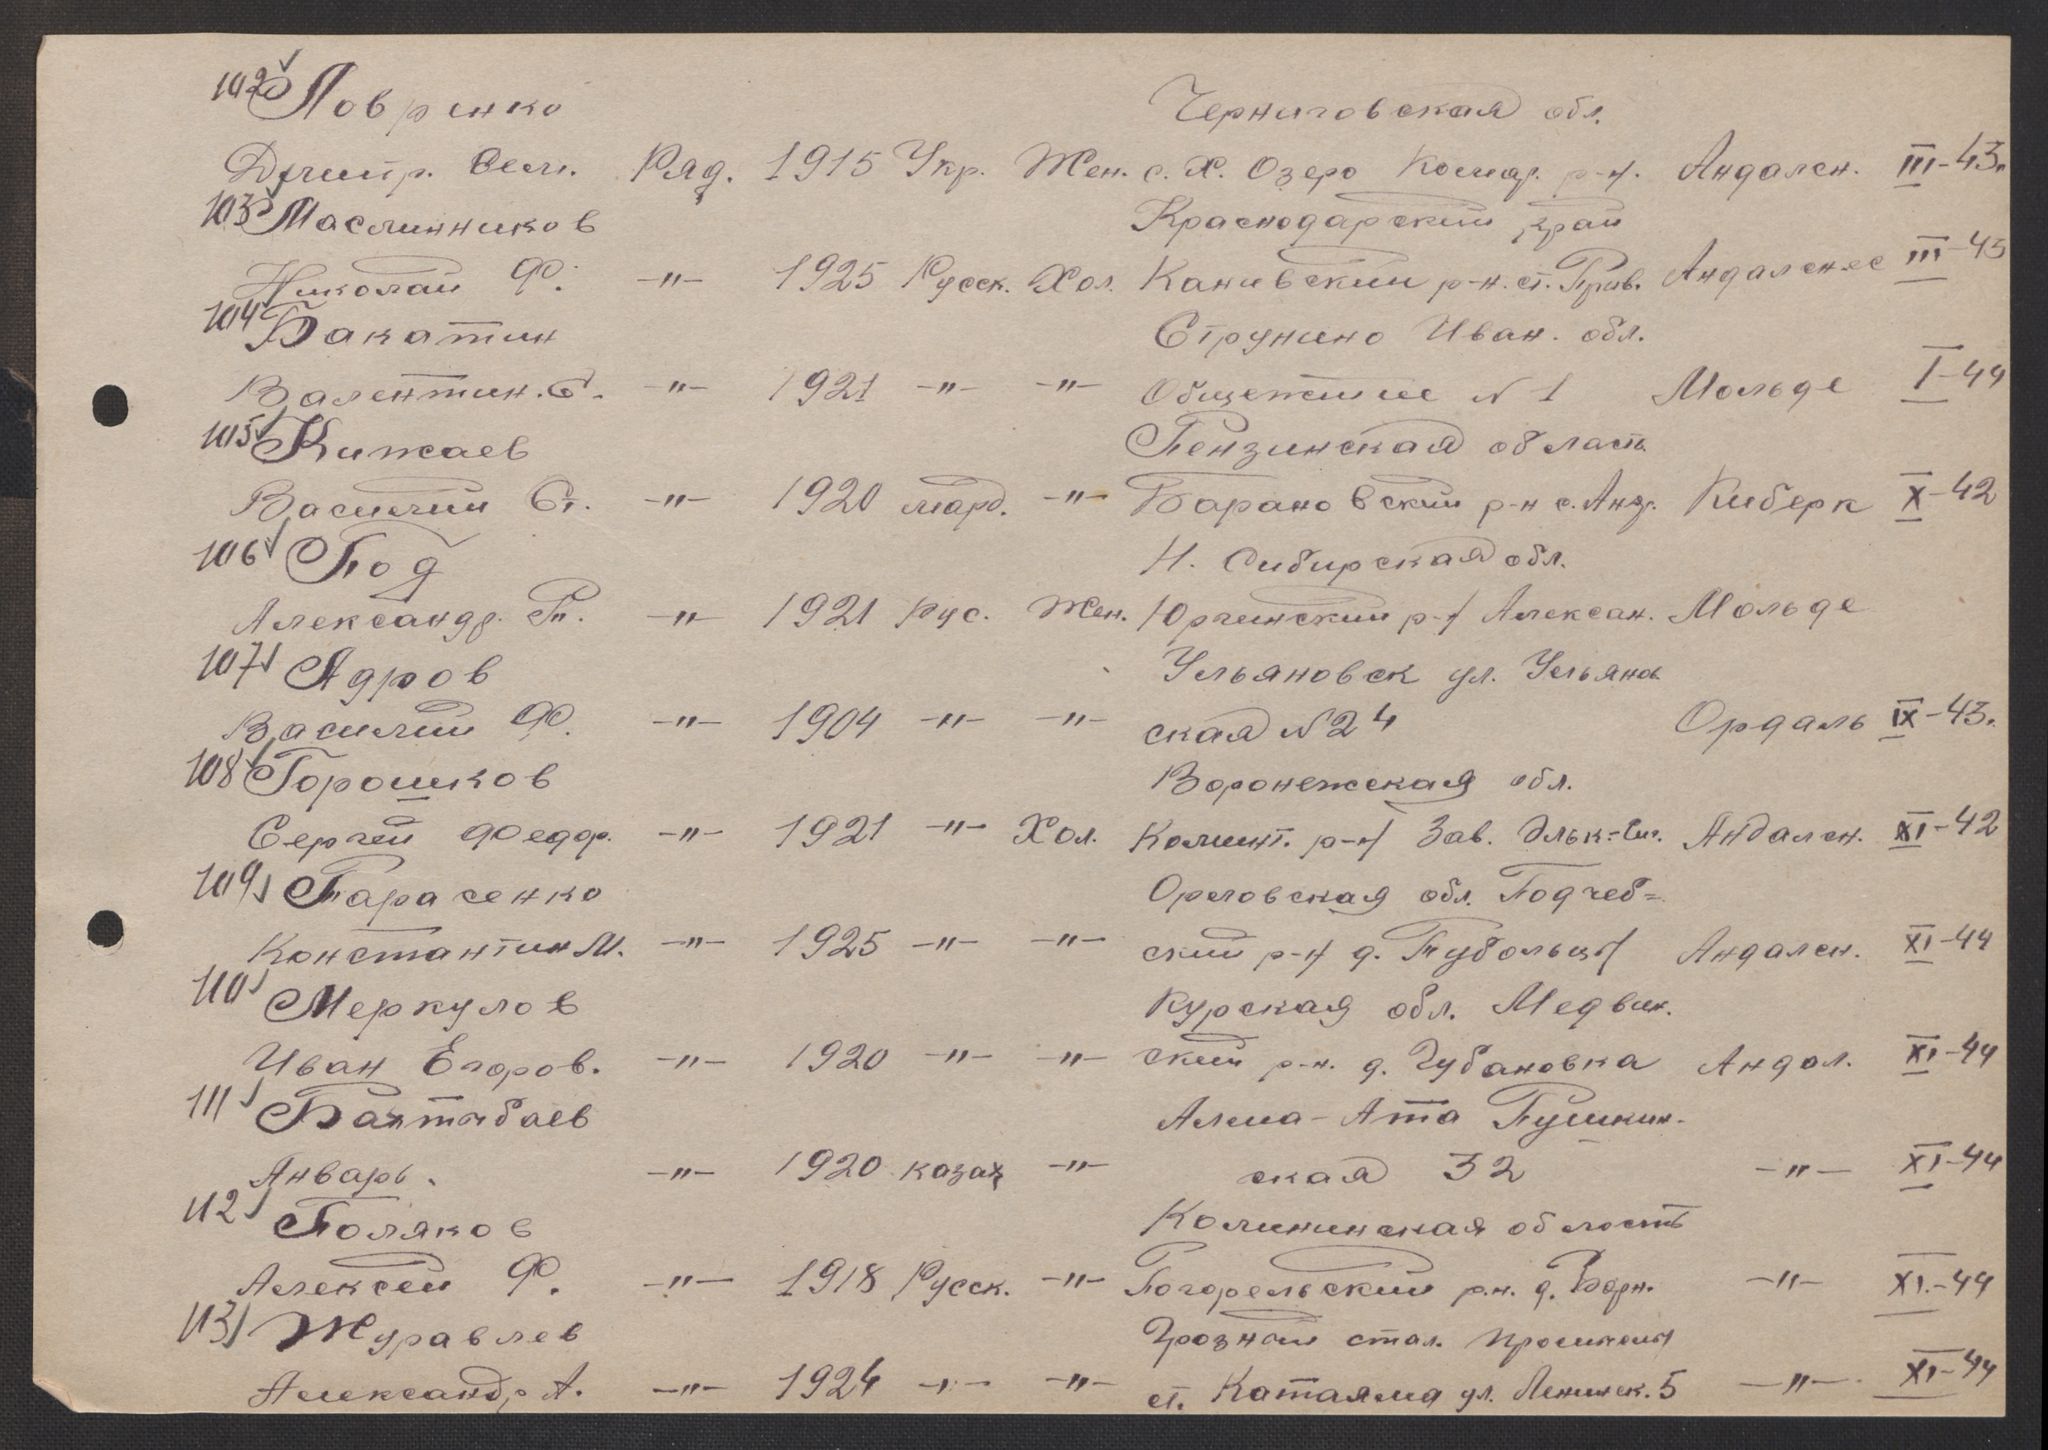 102 Ловринко Черниговская обл.
Дмитр. Сем. Ряд. 1915 Укр. Жен. с. Х. Озеро р-н. Андален. III-43г.
103 Маслинников Краснодарский край
Николай Ф. -"- 1925 Русск. Хол. Каневский р-н. ст. Прив. Андаленес III-43
104 Бакатин Струнино Иван. обл.
Валентин. С. -"- 1921 -"- -"- Общежитие N 1 Мольде I-44
105 Кижаев Пензинская область
Василий Ст. -"- 1920 морд. -"- Барановский р-н с. Киберк X-42
106 Под Н. Сибирская обл.
Александр. П. -"- 1921 Рус. Жен. Юргинский р-н Алексан. Мольде
107 Ядров Ульяновск ул. Ульянов
Василий Ф. -"- 1904 -"- -"- ская N 24 Ордаль IX-43г.
108 Горошков Воронежская обл.
Сергей Федор. -"- 1921 -"- Хол. р-н Зав. Андален. XI-42
109 Тарасенко Орловская обл. Подчеб=
Константин М. -"- 1925 -"- -"- ский р-н д. Андален. XI-44
110 Меркулов Курская обл. Медвин.
Иван Егоров. -"- 1920 -"- -"- ский р-н. д. Губановка Андал. XI-44
111 Бахтыбаев Алма-Ата Пушкин-
Январь. -"- 1920 казах -"- ская 32 -"- XI-44
112 Поляков Калининская область
Алексей Ф. -"- 1918 Русск. -"- Погорельский р.н. д. -"- XI.-44
113 Журавлев Грозный стал. промыслы
Александр А. -"- 1924 -"- -"- ст. Катаяма ул. Ленинск. 5 -"- XI-44